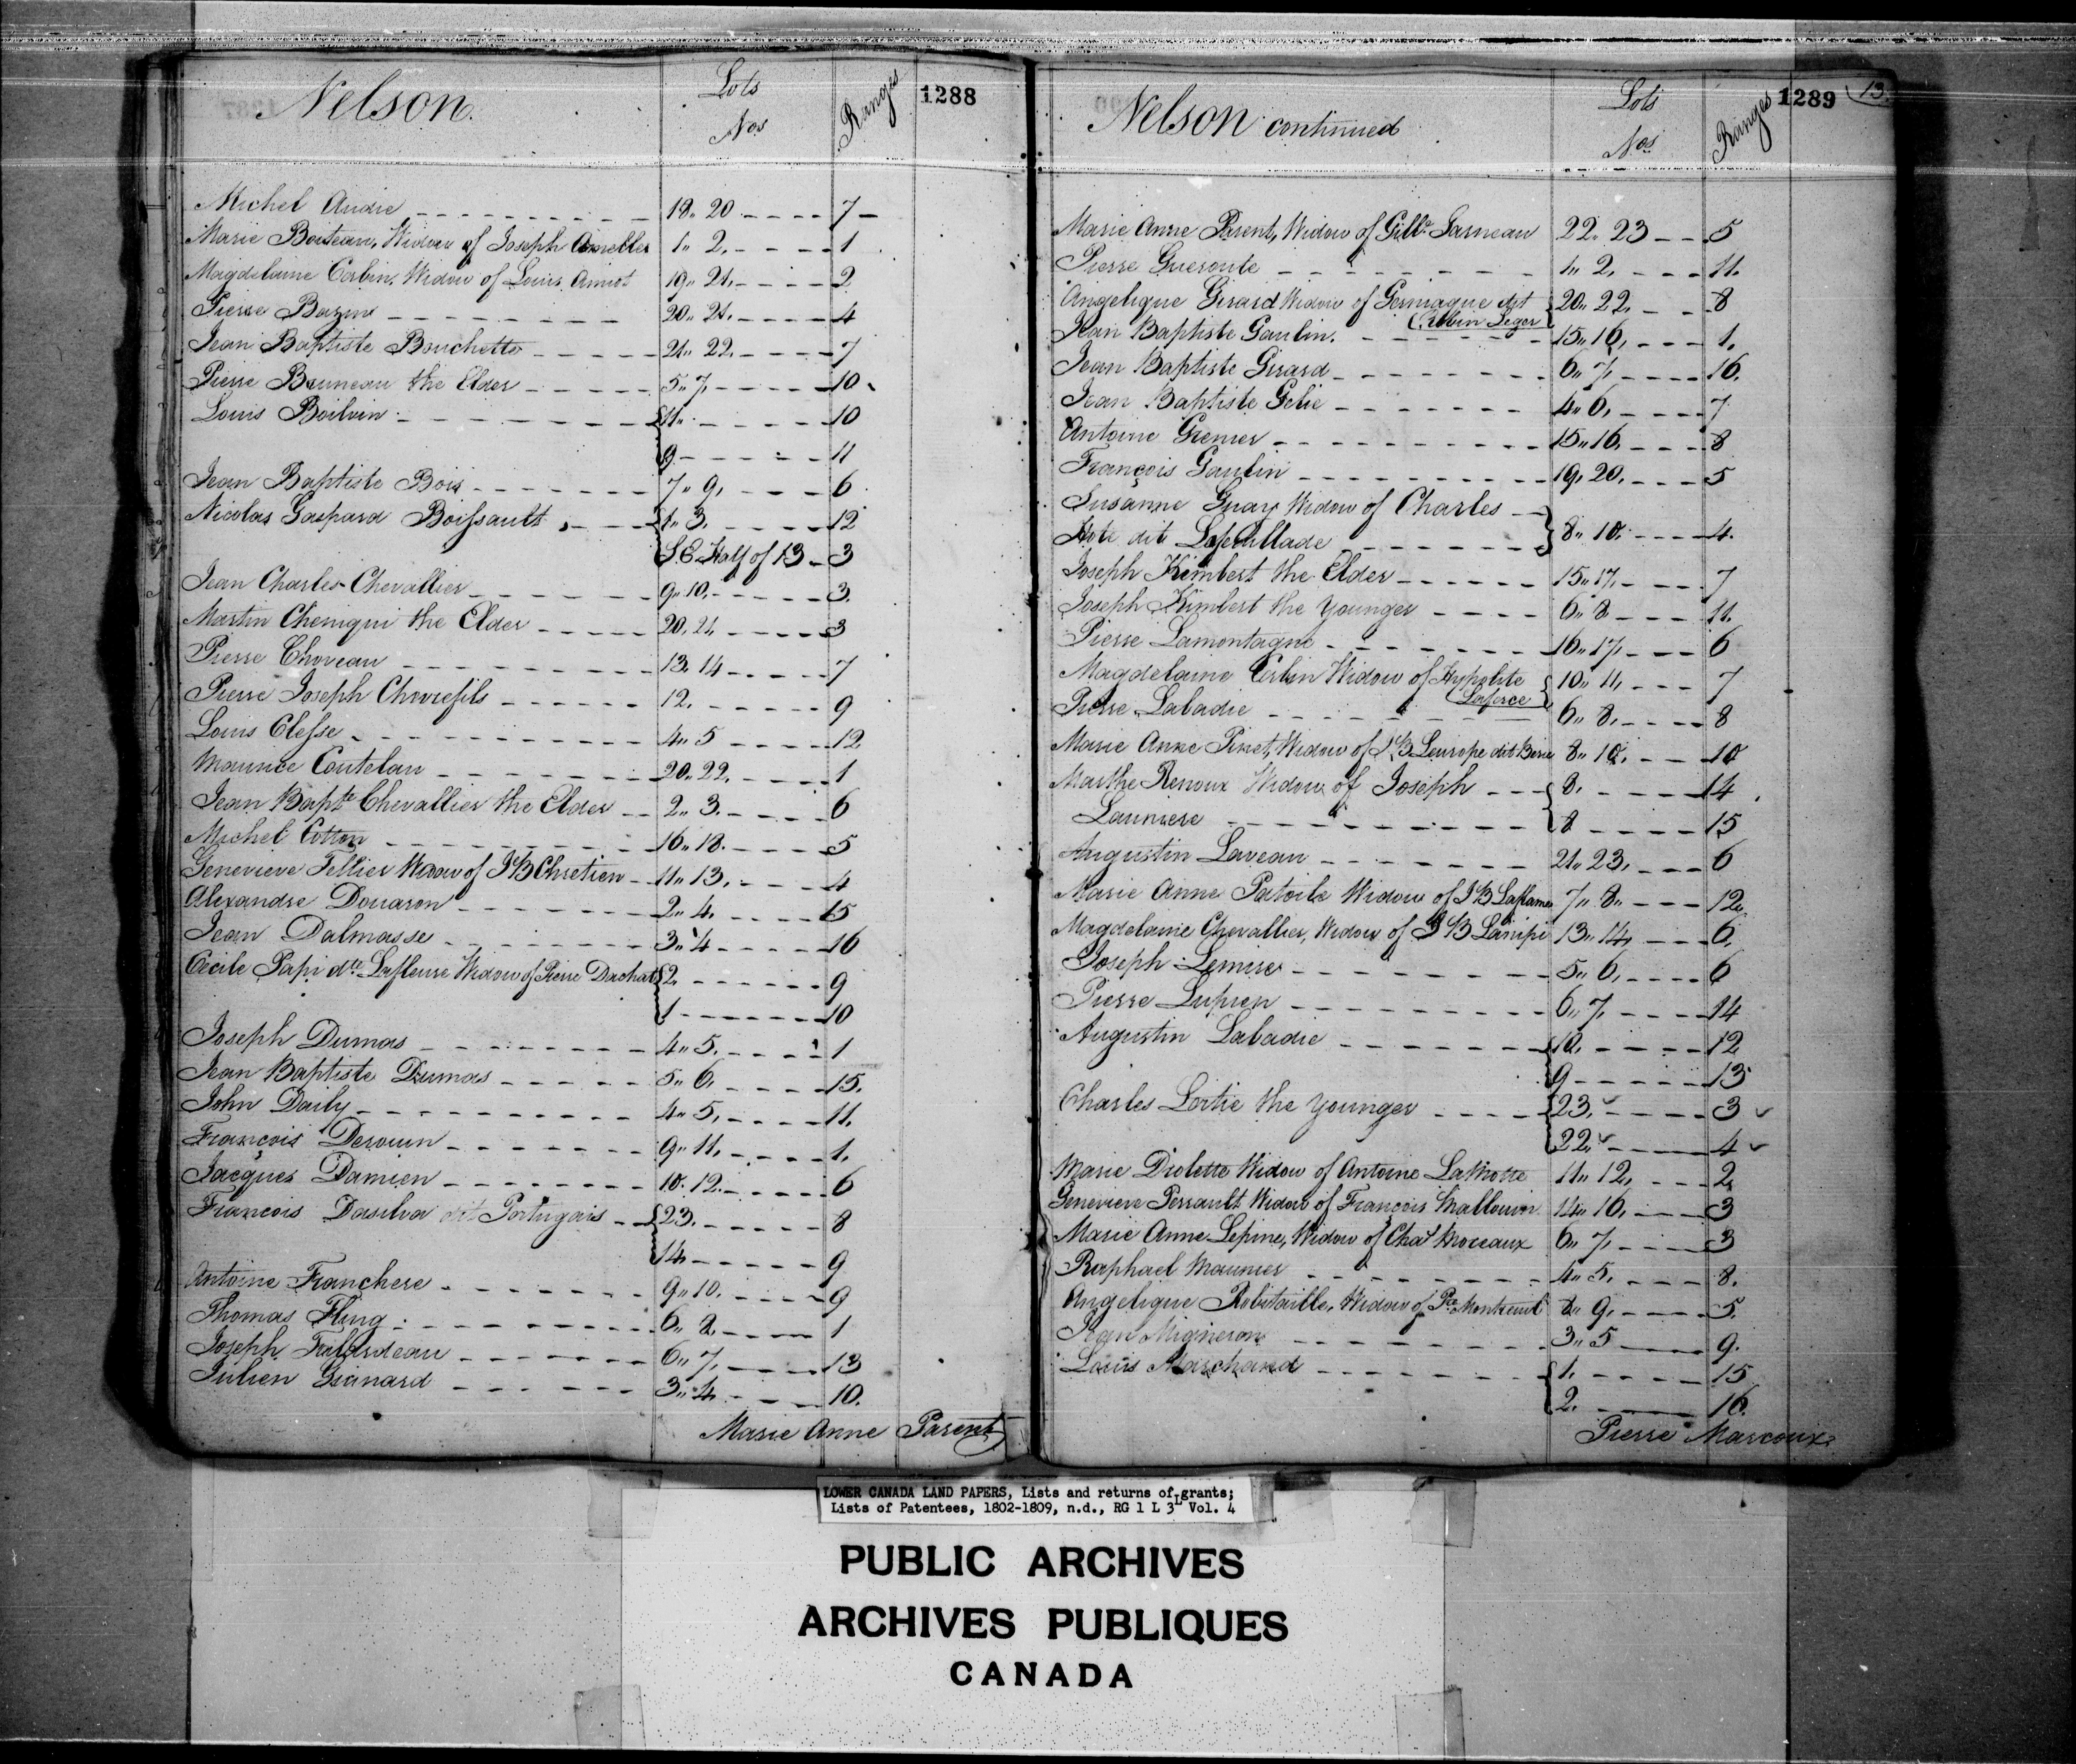 Nelson.
Lots
Nos
Ranges
1288
Michel Audie 18" 20 7
Marie Boiteau, Widow of Joseph Amelles 1" 2. 1
Magdelaine Corbin, Widow of Louis Amiot 19" 21. 2
Pierre Bazin 20" 21. 4
Jean Baptiste Bouchette 21" 22. 7
Pierre Bruneau the Elder 5" 7. 10
Louis Boilvin 11. 10
9 11
Jean Baptiste Bois 7" 9. 6
Nicolas Gaspard Boissault 1" 3. 12
S.E. Half of 13 3
Jean Charles Chevallier 9" 10. 3.
Martin Cheniqui the Elder 20. 21. 3
Pierre Choveau 13. 14 7
Pierre Joseph Chevrefils 12. 9
Louis Clesse 4" 5 12
Maurice Coutelau 20" 22. 1
Jean Bapte Chevallier the Elder 2" 3. 6
Michel Cotton 16" 18. 5
Genevieve Tellier Widow of J B Chretien 11" 13. 4
Alexandre Douaron 2" 4. 15
Jean Dalmasse 3" 4 16
Cecile Papi dte Lafleure Widow of Pierre Duchat 2. 9
1 10
Joseph Dumas 4" 5. 1
Jean Baptiste Dumas 5" 6. 15.
John Daily 4" 5. 11.
François Derouin 9" 11. 1.
Jacques Damien 10. 12. 6
Francois Dasilva dit Portugais 23. 8
14. 9
Antoine Franchere 9" 10. 9
Thomas Fling 6" 8. 1
Joseph Falardeau 6" 7. 13
Julien Guinard 3" 4. 10.
Marie Anne Parent
Nelson continued
Lots
Nos
Ranges
1289
13.
Marie Anne Parent, Widow of Gillt Garneau 22" 23 5
Pierre Gueroute 1" 2. 11.
Angelique Girard Widow of Germaque dit 20" 22. 8
Robin Leger
Jean Baptiste Gaulin. 15" 16. 1.
Jean Baptiste Girard 6" 7. 16.
Jean Baptiste Gelie 4" 6. 7
Antoine Grenier 15" 16. 8
François Gaulin 19. 20. 5
Susanne Guay Widow of Charles
Hote dit Lafeuillade 8" 10. 4.
Joseph Kimbert the Elder 15" 17. 7
Joseph Kimbert the Younger 6" 8 11.
Pierre Lamontagne 16" 17. 6
Magdelaine Corbin Widow of Hypolite 10" 11. 7
Laforce
Pierre Labadie 6" 8. 8
Marie Anne Pinet, Widow of J.B. Leurope dit 8" 10. 10
Marthe Renoux Widow of Joseph 8. 14
Launiere 8 15
Augustin Laveau 21" 23. 6
Marie Anne Patoile Widow of J B Laflame 7" 8" 12.
Magdelaine Chevallier, Widow of J B Lanipi 13" 14. 6.
Joseph Lemire 5" 6. 6
Pierre Lupien 6" 7. 14
Augustin Labadie 10. 12
9 13
Charles Lortie the Younger 23. 3
22. 4
Marie Diolette Widow of Antoine LaMotte 11" 12. 2
Genevieve Perrault Widow of François Mallouin 14" 16. 3
Marie Anne Lepine, Widow of Chas Moreaux 6" 7. 3
Raphael Maunier 4" 5. 8.
Angelique Robitaille, Widow of Pre Montreuil 8" 9. 5.
Jean Migneron 3" 5 9.
Louis Marchand 1. 15
2. 16.
Pierre Marcoux
LOWER CANADA LAND PAPERS, Lists and returns of grants;
Lists of Patentees, 1802-1809, n.d., RG 1 L 3L Vol. 4
PUBLIC ARCHIVES
ARCHIVES PUBLIQUES
CANADA